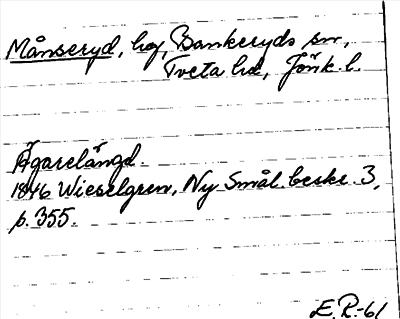 Månseryd, hg, Bankeryds sn,
Tveta hd, Jönk. l.
Ägarelängd.
1846 Wieselgren, Ny Smål. beskr. 3,
p. 355.
E.R.-61